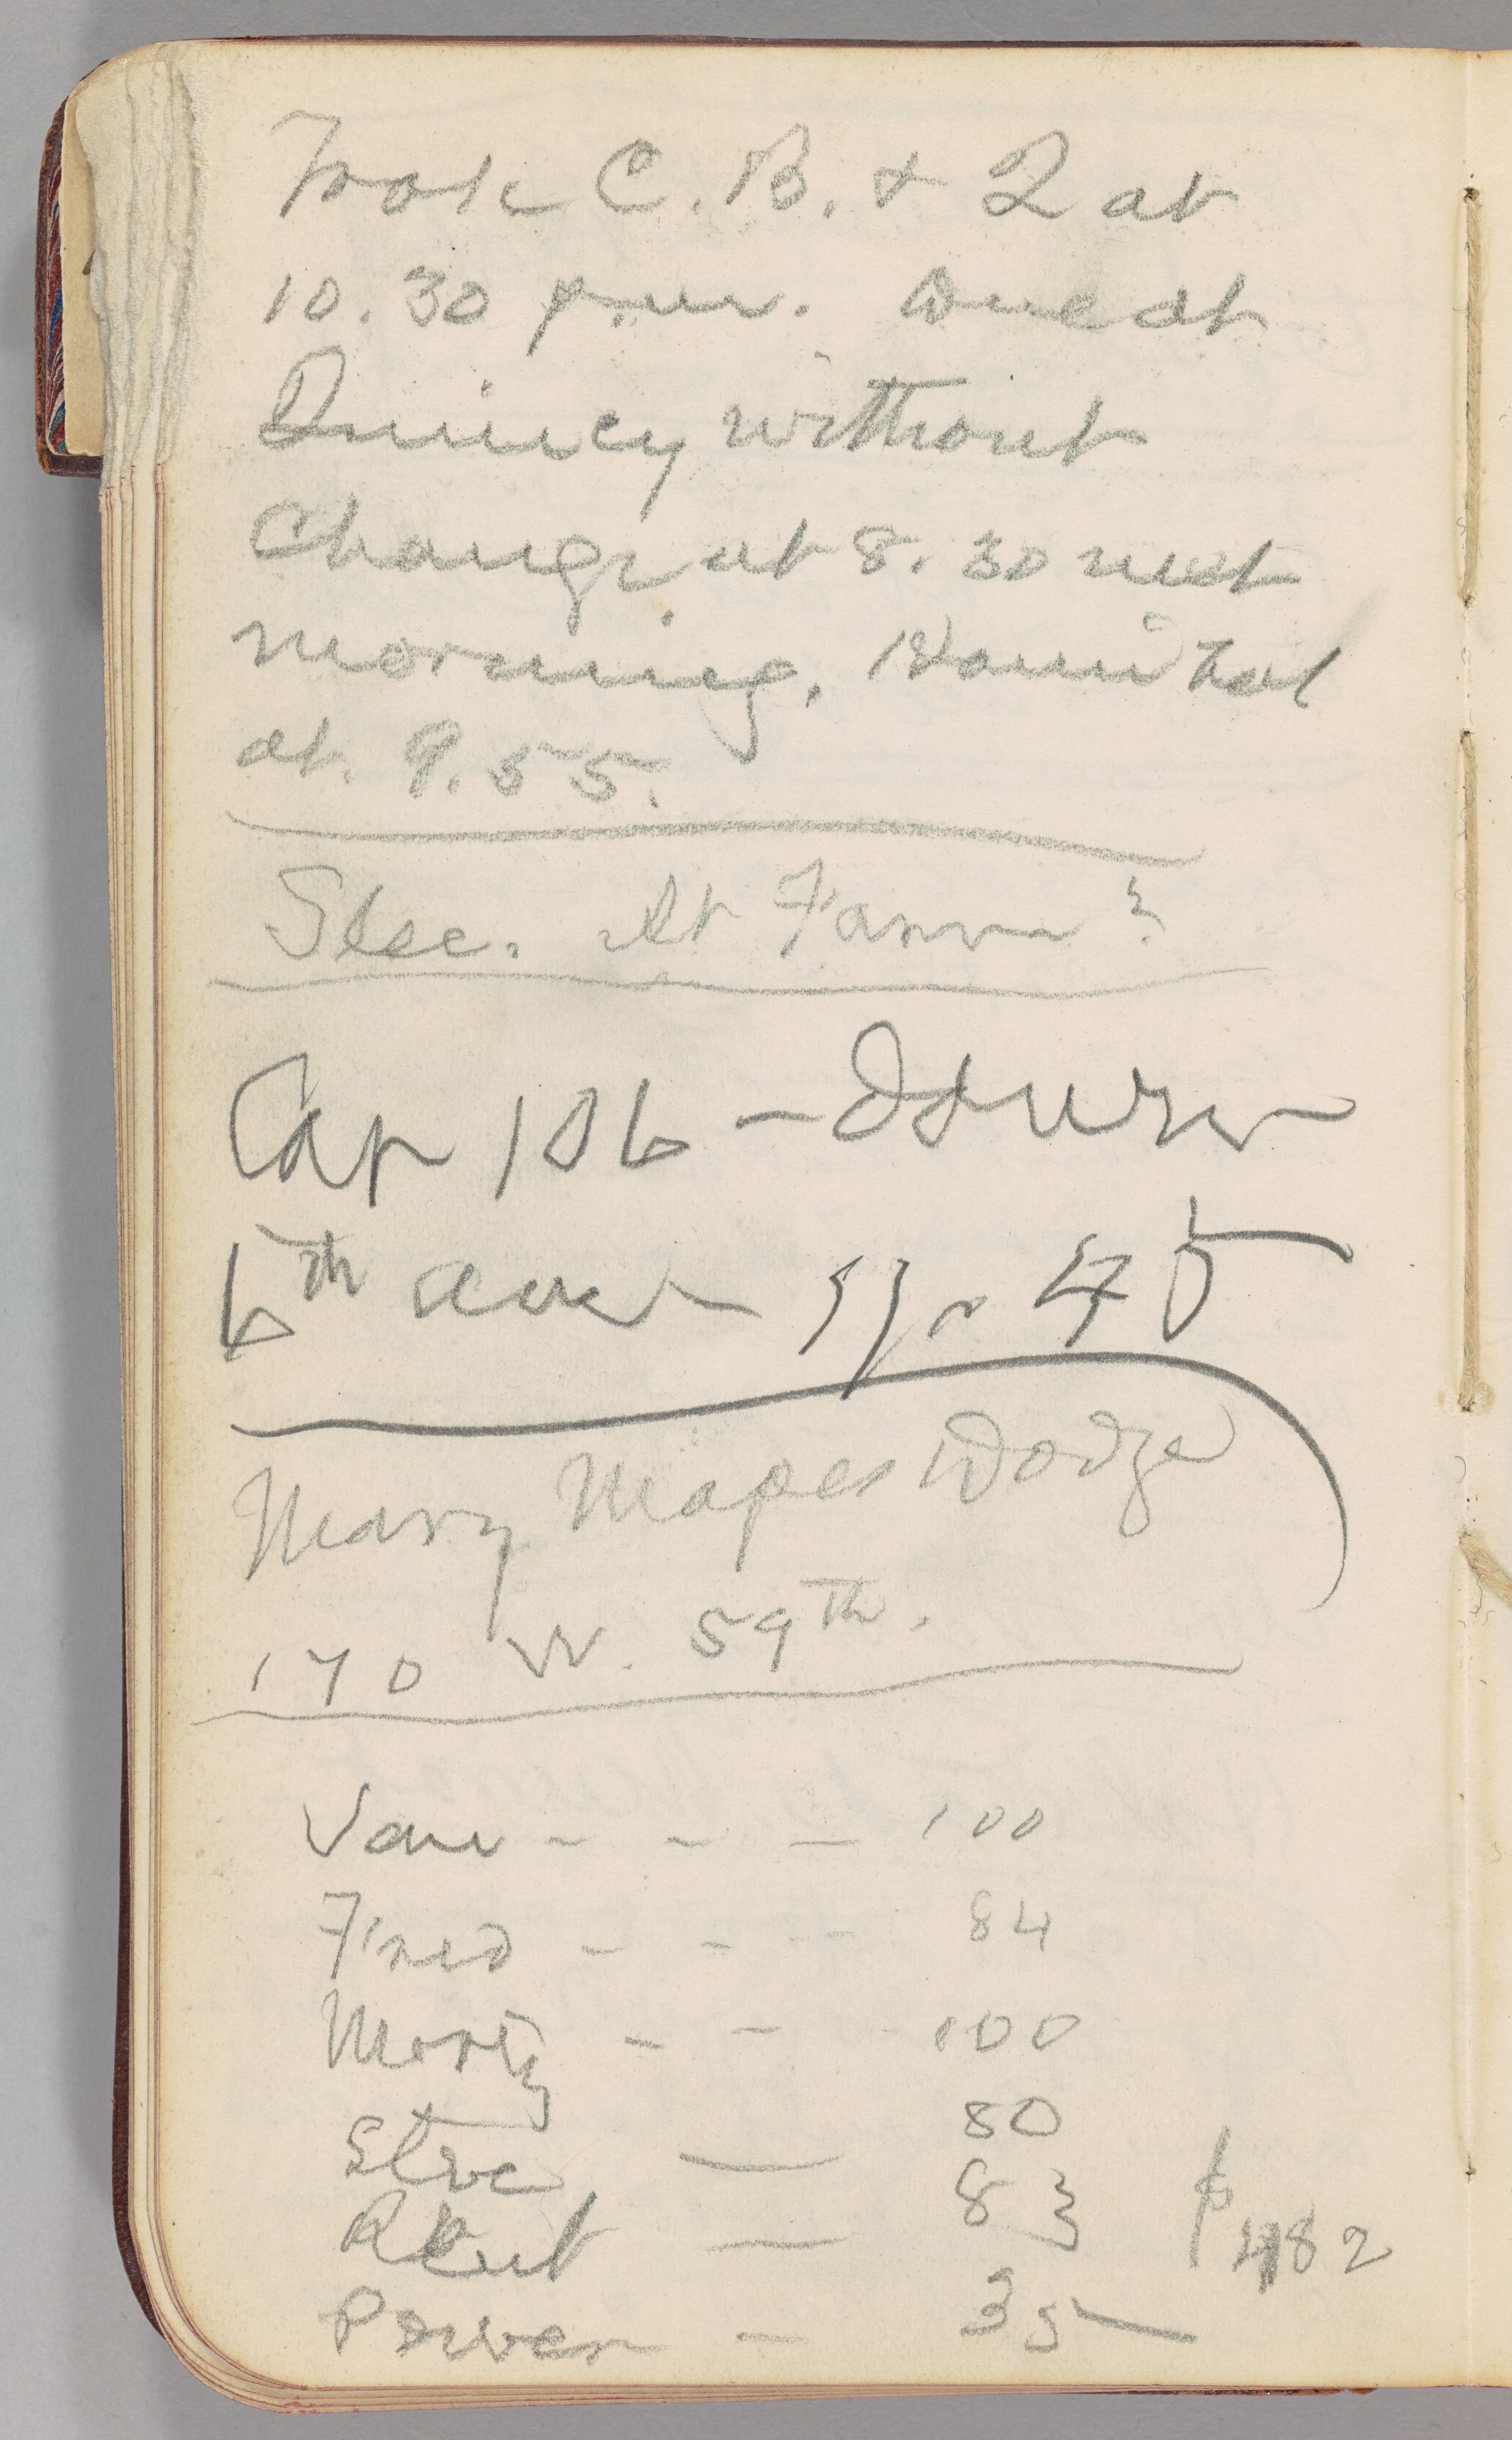 Took C. B. & Q at
10.30 p.m. Due at
Quincy without
change at 8.30 next
morning. Hannibal
at 9.55.
Slee. At Farm?
Car 106 - down
6th ave - 45
Mary Mapes Dodge
170 W. 59th.
Van - - - 100
Fred - - - 84
Morty - - 100
Stve — 80
Rent — 83
$482
Power — 35